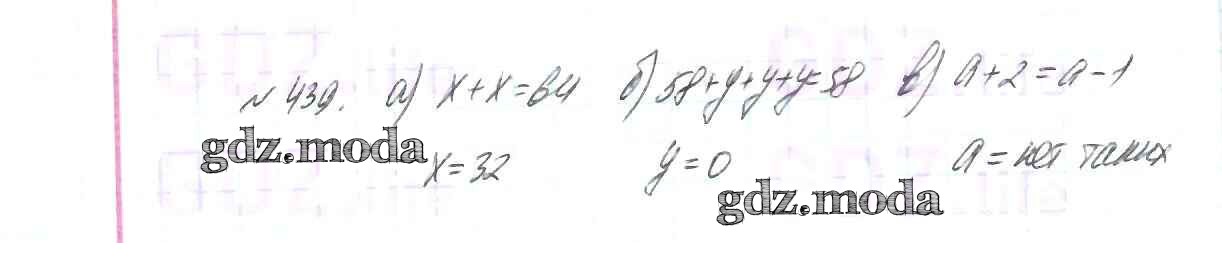 № 439. а) x+x=64 б) 58+y+y+y=58 в) a+2=a-1
gdz.moda
x=32 y=0 a= нет таких
gdz.moda